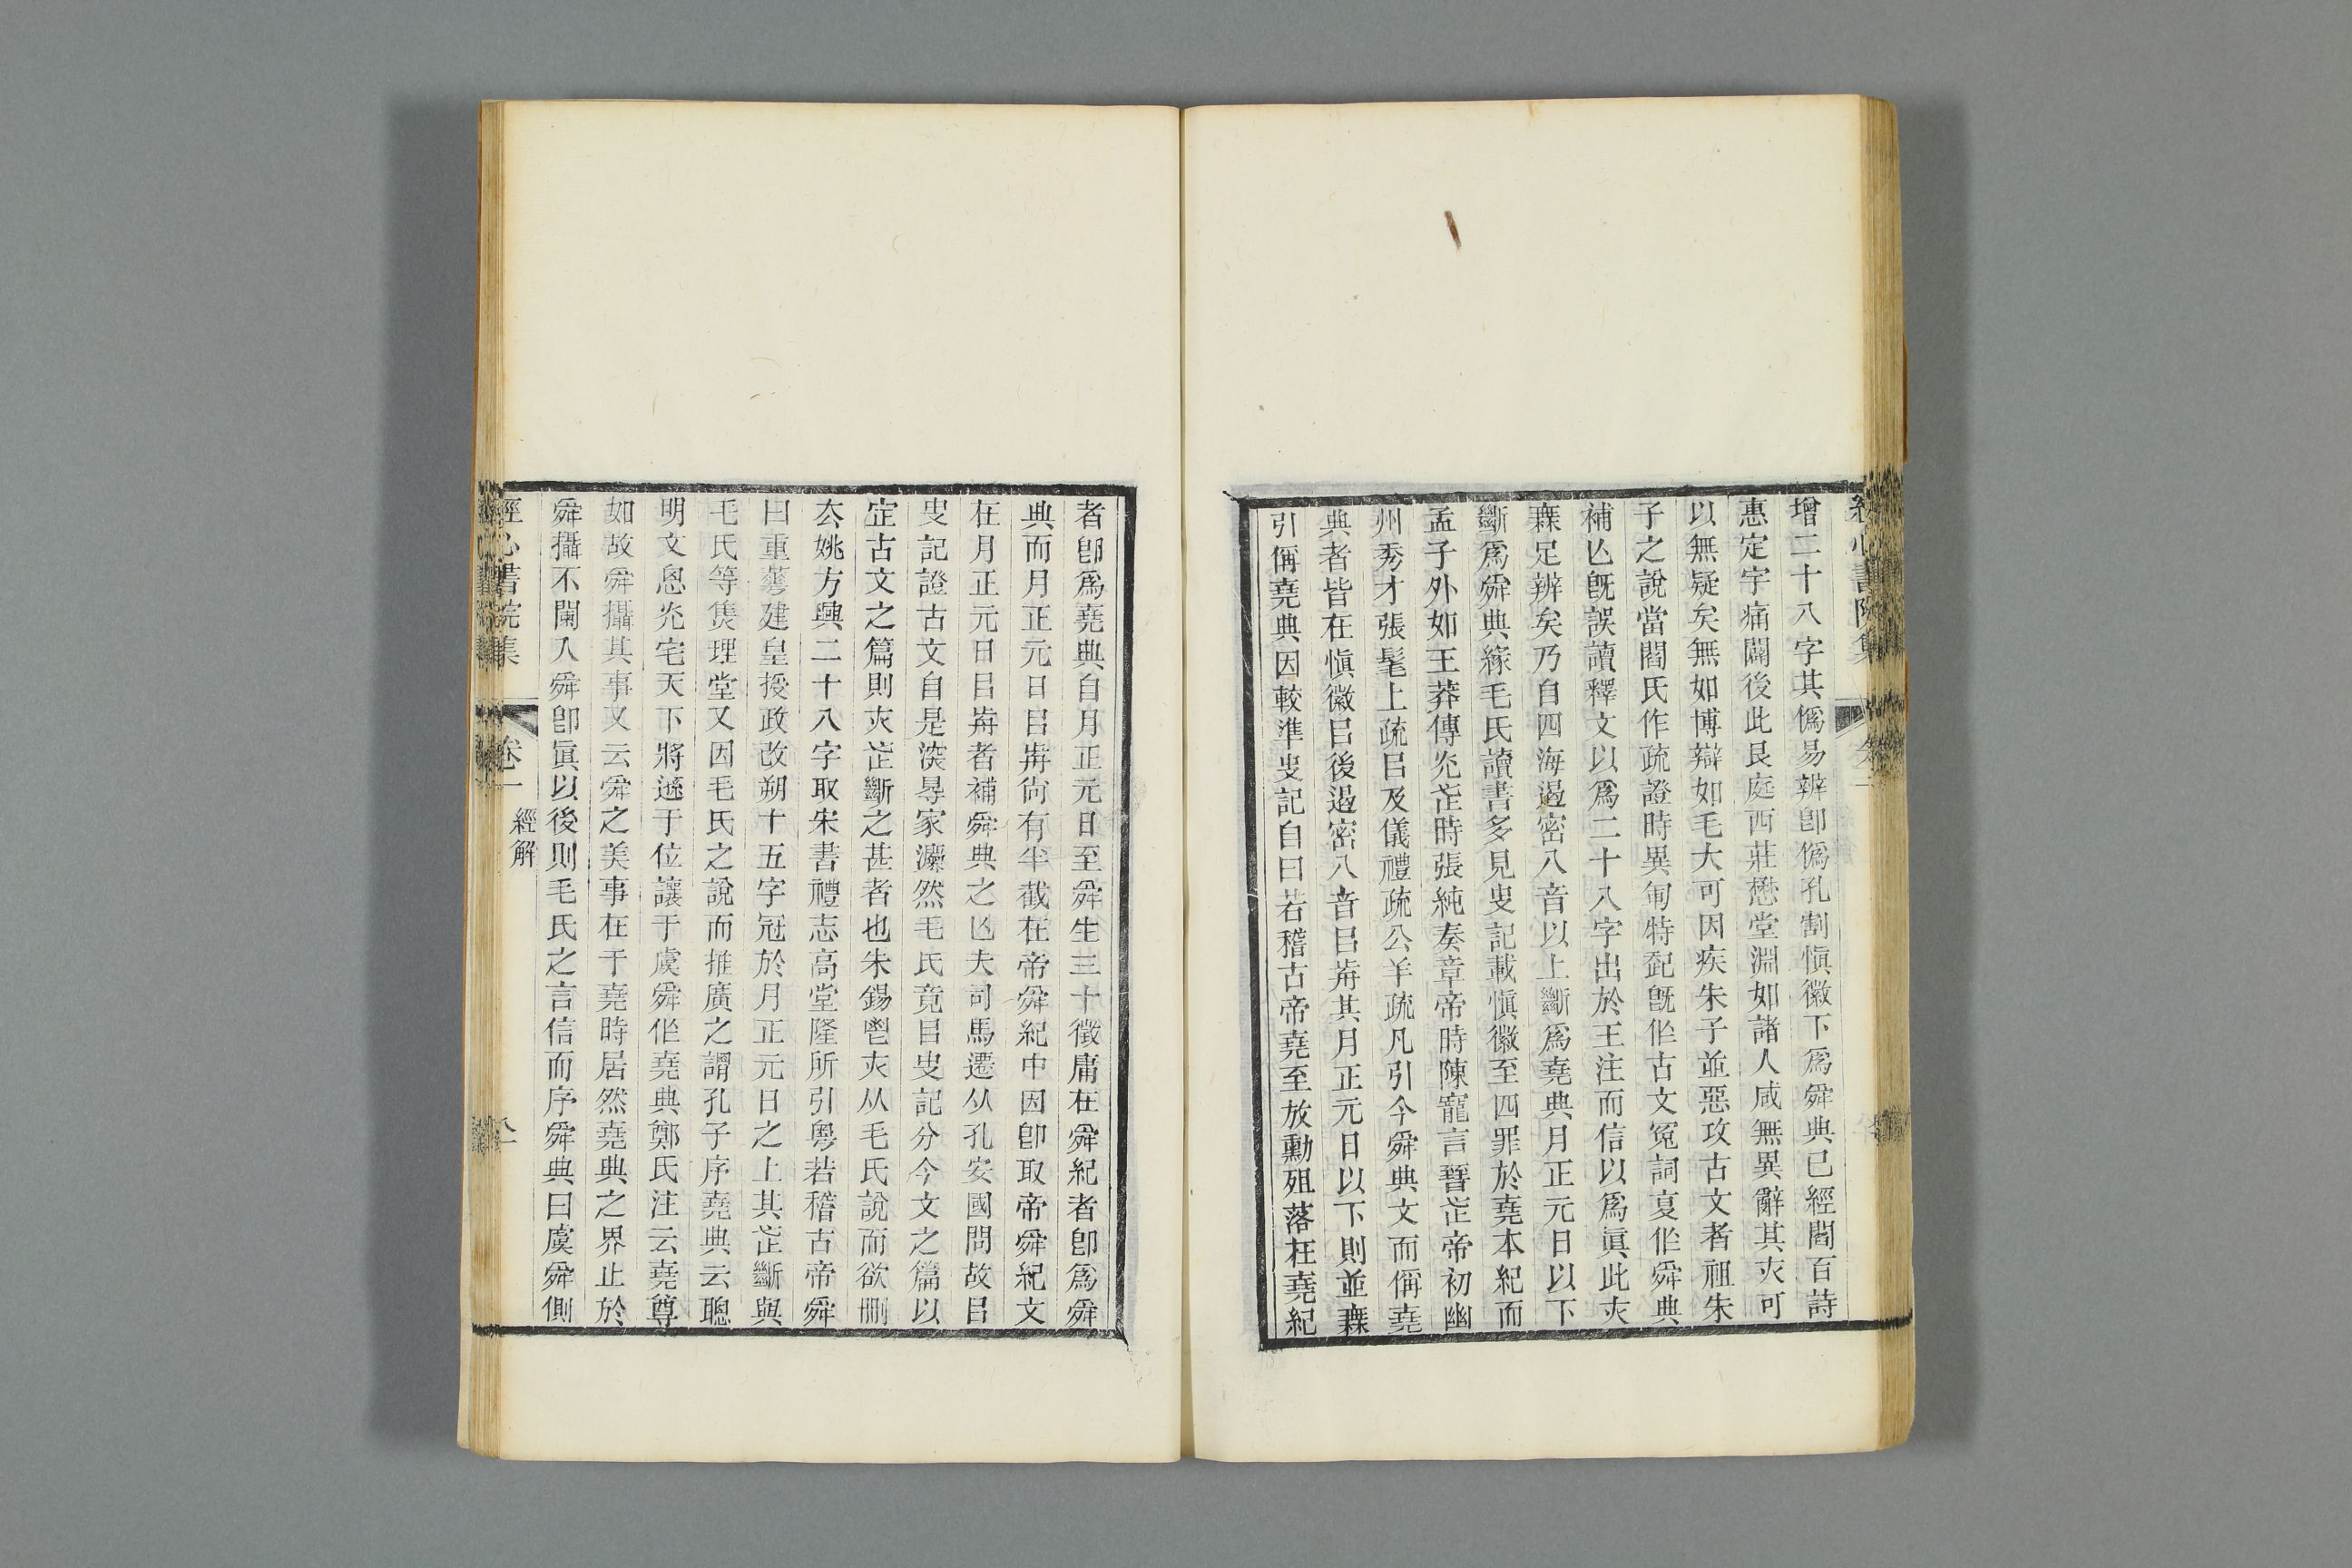 經心書院集
增二十八字其僞易辨卽僞孔割愼徽下爲舜典已經閻百詩
惠定宇痛闢後此艮庭西莊懋堂淵如諸人咸無異辭其夾可
以無疑矣無如博辯如毛大可因疾朱子並惡攻古文者祖朱
子之說當閻氏作疏證時異匍特㔻旣作古文冤詞夏作舜典
補亾旣誤讀釋文以爲二十八字出於王注而信以爲眞此夾
森足辨矣乃自四海遏密八音以上斷爲堯典月正元日以下
斷爲舜典緣毛氏讀書多見叓記載愼徽至四罪於堯本紀而
孟子外如王莽傳光㞢時張純奏章帝時陳寵言晉㞢帝初幽
州秀才張髦上疏㠯及儀禮疏公羊疏凡引今舜典文而偁堯
典者皆在愼徽㠯後遏密八音㠯歬其月正元日以下則並橆
引偁堯典因較準叓記自曰若稽古帝堯至放勳殂落在堯紀
者卽爲堯典自月正元日至舜生三十徵庸在舜紀者卽爲舜
典而月正元日㠯歬尙有半截在帝舜紀中因卽取帝舜紀文
在月正元日㠯歬者補舜典之亾夫司馬遷从孔安國問故㠯
叓記證古文自是漢㝵家灋然毛氏竟㠯叓記分今文之篇以
定古文之篇則夾㞢斷之甚者也朱錫鬯夾从毛氏說而欲刪
去姚方興二十八字取宋書禮志高堂隆所引粵若稽古帝舜
曰重華建皇授政改朔十五字冠於月正元日之上其㞢斷與
毛氏等焦理堂又因毛氏之說而推廣之謂孔子序堯典云聰
明文思光宅天下將遜于位讓于虞舜作堯典鄭氏注云堯尊
如故舜攝其事又云舜之美事在于堯時居然堯典之界止於
舜攝不闌入舜卽眞以後則毛氏之言信而序舜典曰虞舜側
經心書院集
卷一
經解